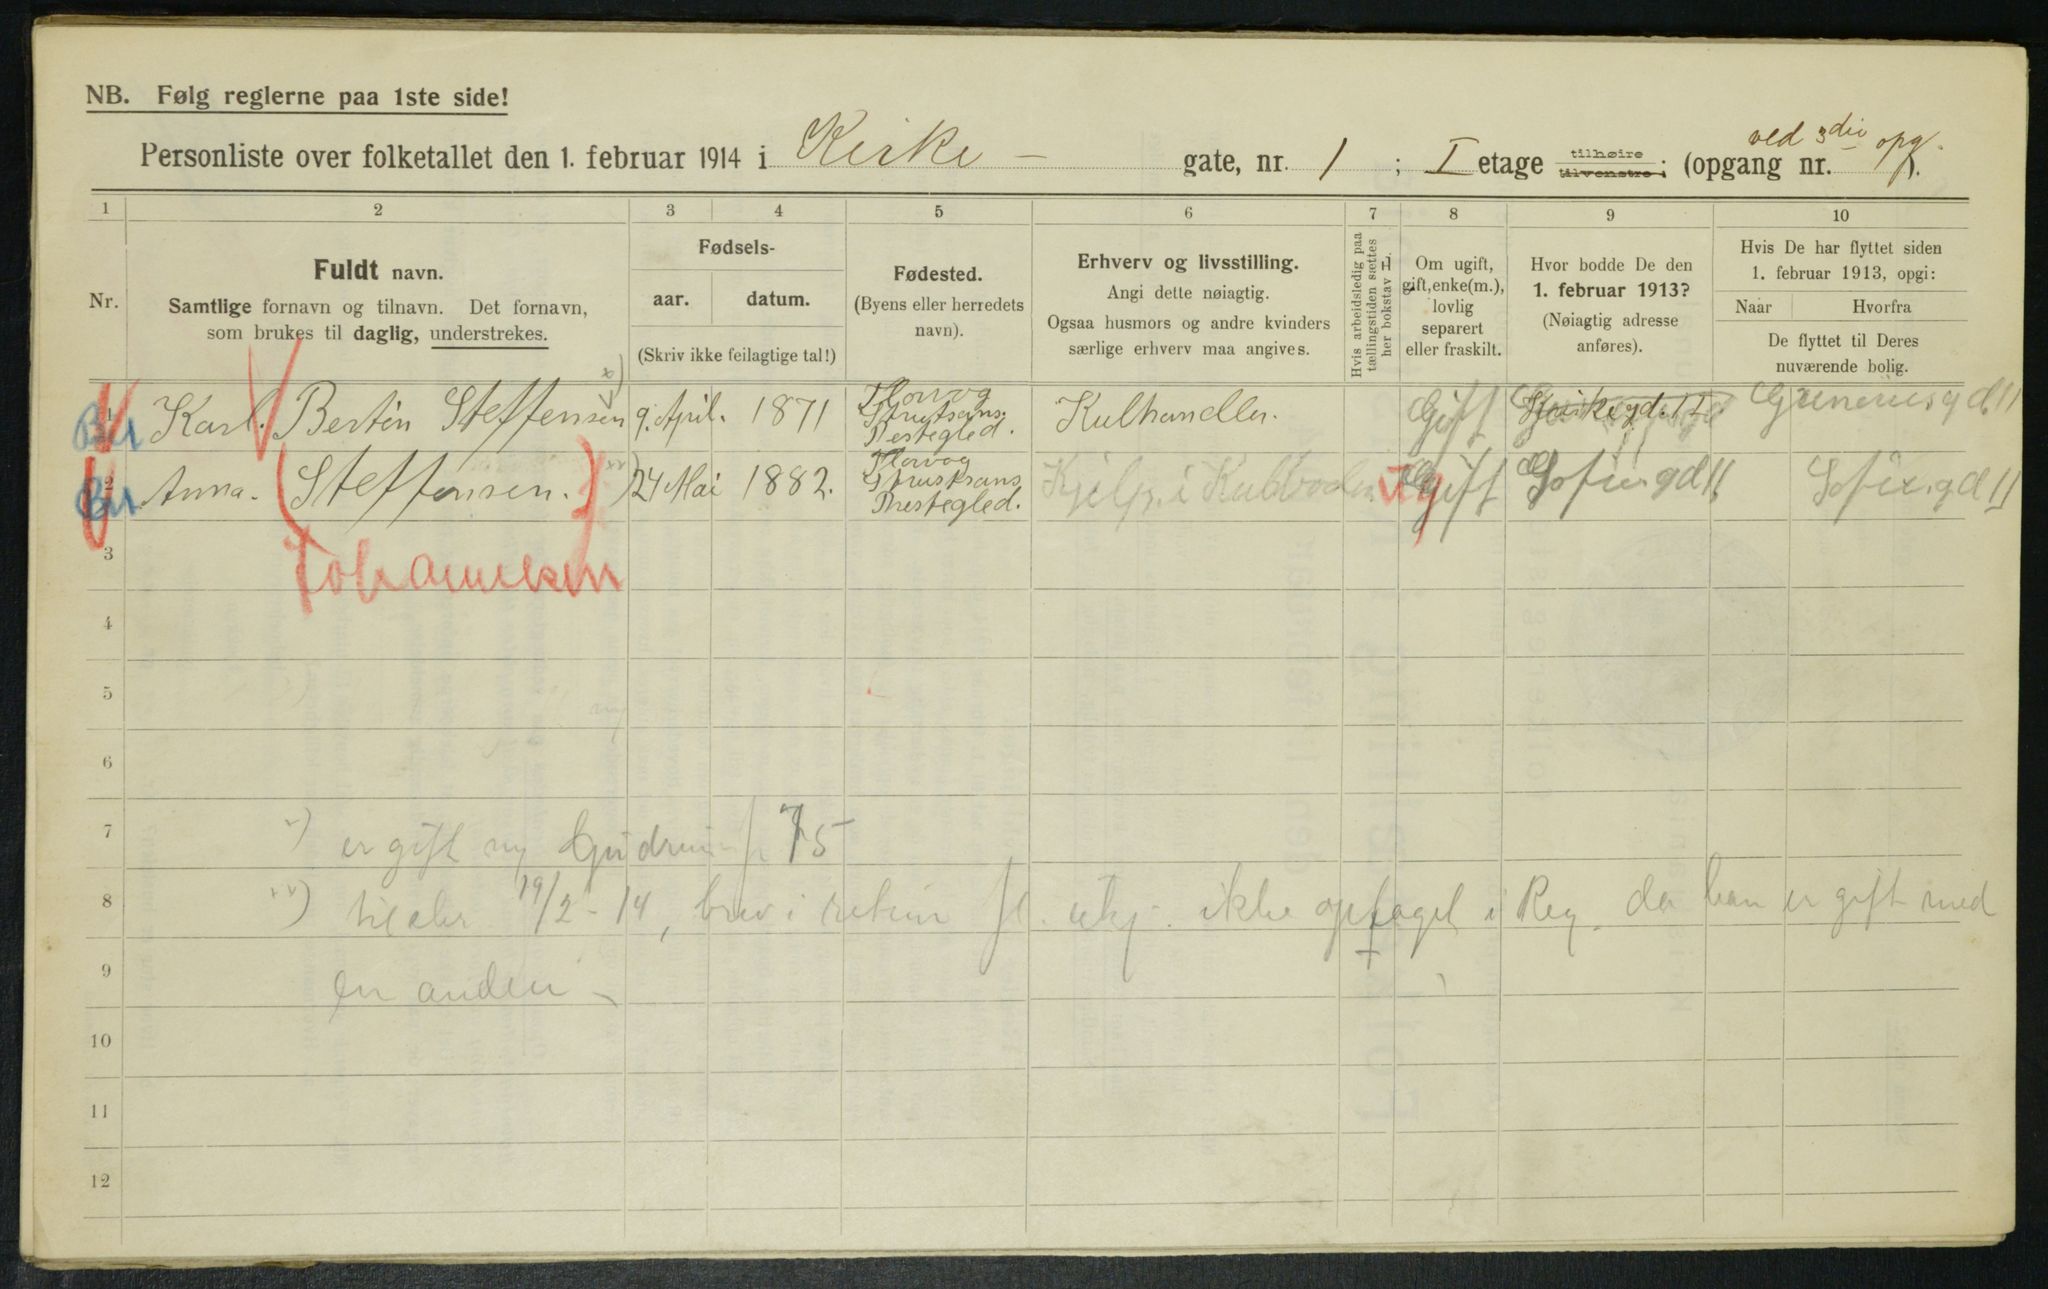 NB. Følg reglerne paa 1ste side!
Personliste over folketallet den 1. februar 1914 i Kirke - gate, nr. 1 ; I etage tilhøire tilvenstre ; (opgang nr. ved 3die opg. ).
1 2 3 4 5 6 7 8 9 10
Nr.
Fuldt navn.
Samtlige fornavn og tilnavn. Det fornavn,
som brukes til daglig, understrekes.
Fødsels-
aar. datum.
(Skriv ikke feilagtige tal!)
Fødested.
(Byens eller herredets
navn).
Erhverv og livsstilling.
Angi dette nøiagtig.
Ogsaa husmors og andre kvinders
særlige erhverv maa angives.
Hvis arbeidsledig paa
tællingstiden sættes
her bokstav L
Om ugift,
gift, enke(m.),
lovlig
separert
eller fraskilt.
Hvor bodde De den
1. februar 1913?
(Nøiagtig adresse
anføres).
Hvis De har flyttet siden
1. februar 1913, opgi:
Naar Hvorfra
De flyttet til Deres
nuværende bolig.
1 Karl. Bertin Steffensen x) 9. April. 1871 Kulhandler. Gift gd. 11
2 Anna. (Steffensen.) xx) 24 Mai 1882. Prestegled. Hjelp. i Gift Sofie.gd 11 Sofie.gd 11
Johannesen
3
4
5
6
7 x) er gift m Gudrun f 75
8 xx) 19/2-14, brev i retur ikke optaget i Reg. da han er gift med
9 en anden -
10
11
12